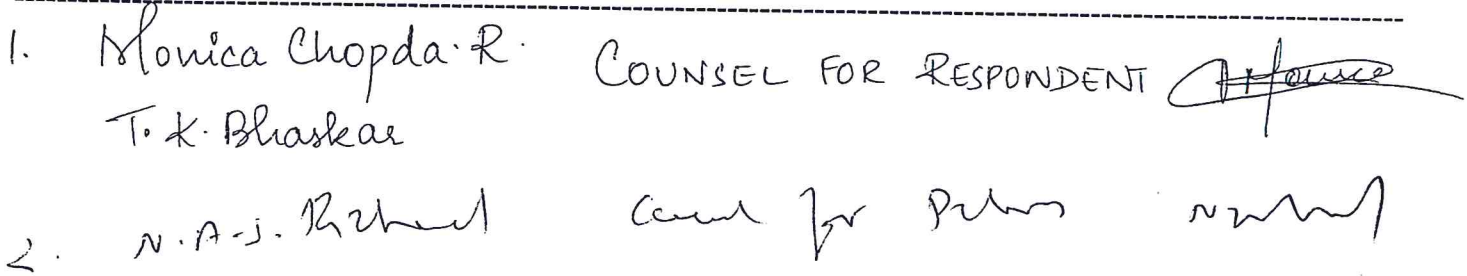 1. Monica Chopda. R. COUNSEL FOR RESPONDENT
T. K. Bhaskar
2. N. A. J. Counsel for